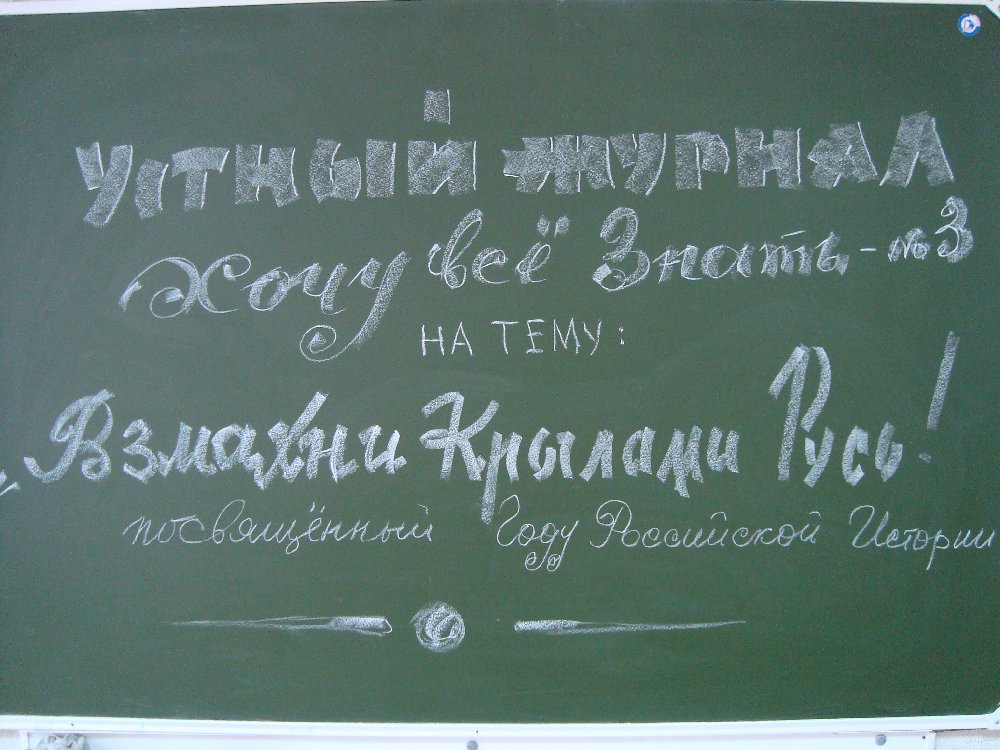 УСТНЫЙ ЖУРНАЛ
Хочу всё Знать - № 3
НА ТЕМУ:
„Взмахни Крылами Русь!
посвящённый Году Российской Истории